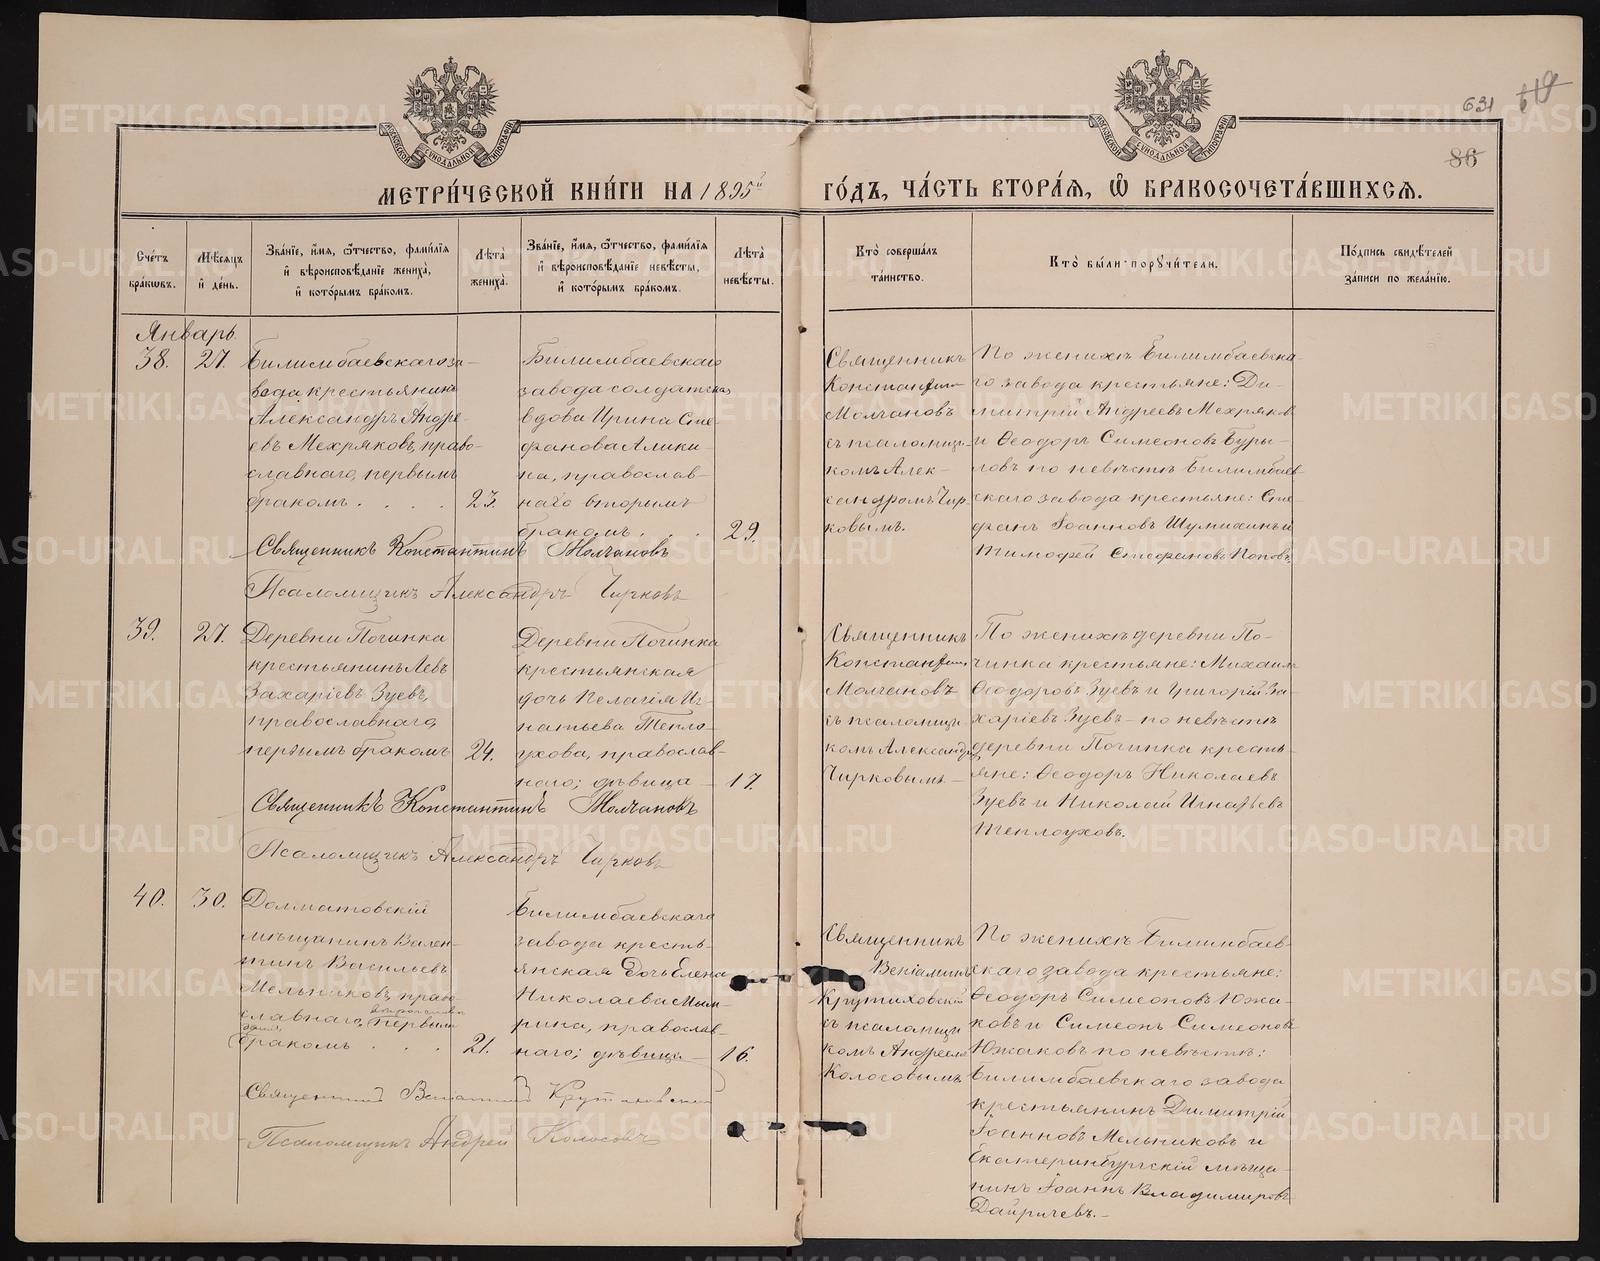 631
619
86
МЕТРИ́ЧЕСКОЙ КНИ́ГИ НА 1895й ГО́ДЪ, ЧА́СТЬ ВТОРА́Я, Ѽ БРАКОСОЧЕТА́ВШИХСЯ.
Сче́тъ бра́ковъ.
Мѣ́сяцъ и҆ де́нь.
Зва́нїе, и҆́мя, ѻ҆́тчество, фами́лїя и҆ вѣроисповѣ́данїе жениха̀, и҆ кото́рымъ бра́комъ.
Лѣ́та жениха̀.
Зва́нїе, и҆́мя, ѻ҆́тчество, фами́лїя и҆ вѣроисповѣ́данїе невѣ́сты, и҆ кото́рымъ бра́комъ.
Лѣ́та невѣ́сты.
Кто̀ соверша́лъ та́инство.
Кто̀ бы́ли порꙋчи́тели.
По́дпись свидѣ́телей за́писи по жела́нїю.
Январь
38.
27.
Билимбаевскаго за-
вода крестьянинъ
Александръ Андре-
евъ Мехряковъ, право-
славнаго, первымъ
бракомъ . . . .
23.
Билимбаевскаго
завода солдатская
вдова Ирина Сте-
фанова Алики-
на, православ-
наго вторымъ
бракомъ . . .
29.
Священникъ
Константинъ
Молчановъ
съ псаломщи-
комъ Алек-
сандромъ Чир-
ковымъ.
По женихѣ Билимбаевска-
го завода крестьяне: Ди-
митрій Андреевъ Мехряковъ
и Ѳеодоръ Симеоновъ Буры-
ловъ по невѣстѣ Билимбаев-
скаго завода крестьяне: Сте-
фанъ Іоанновъ Шумихинъ и
Тимофей Стефановъ Поповъ
Священникъ Константинъ Молчановъ
Псаломщикъ Александръ Чирковъ
39.
27.
Деревни Починка
крестьянинъ Левъ
Захаріевъ Зуевъ,
православнаго,
первымъ бракомъ
24.
Деревни Починка
крестьянская
дочь Пелагія Иг-
натьева Тепло-
ухова, православ-
наго; дѣвица
17.
Священникъ
Константинъ
Молчановъ
съ псаломщи-
комъ Александромъ
Чирковымъ –
По женихѣ деревни По-
чинка крестьяне: Михаилъ
Ѳеодоровъ Зуевъ и Григорій За-
харіевъ Зуевъ – по невѣстѣ
деревни Починка кресть-
яне: Ѳеодоръ Николаевъ
Зуевъ и Николай Игнатьевъ
Теплоуховъ.
Священникъ Константинъ Молчановъ
Псаломщикъ Александръ Чирковъ
40.
30.
Долматовскій
мѣщанинъ Вален-
тинъ Васильевъ
Мельниковъ, право-
славнаго, первымъ
бракомъ . . .
21.
Билимбаевскаго
завода кресть-
янская дочь Елена
Николаева Мым-
рина, православ-
наго; дѣвица –
16.
Священникъ
Веніаминъ
Крутиховскій
съ псаломщи-
комъ Андреемъ
Колосовымъ
По женихѣ Билимбаев-
скаго завода крестьяне:
Ѳеодоръ Симеоновъ Южа-
ковъ и Симеонъ Симеоновъ
Южаковъ по невѣстѣ:
Билимбаевскаго завода
крестьянинъ Димитрій
Іоанновъ Мельниковъ и
Екатеринбургскій мѣща-
нинъ Іоаннъ Владимировъ
Священникъ Веніаминъ Крутиховскій
Псаломщикъ Андрей Колосовъ
METRIKI.GASO-URAL.RU